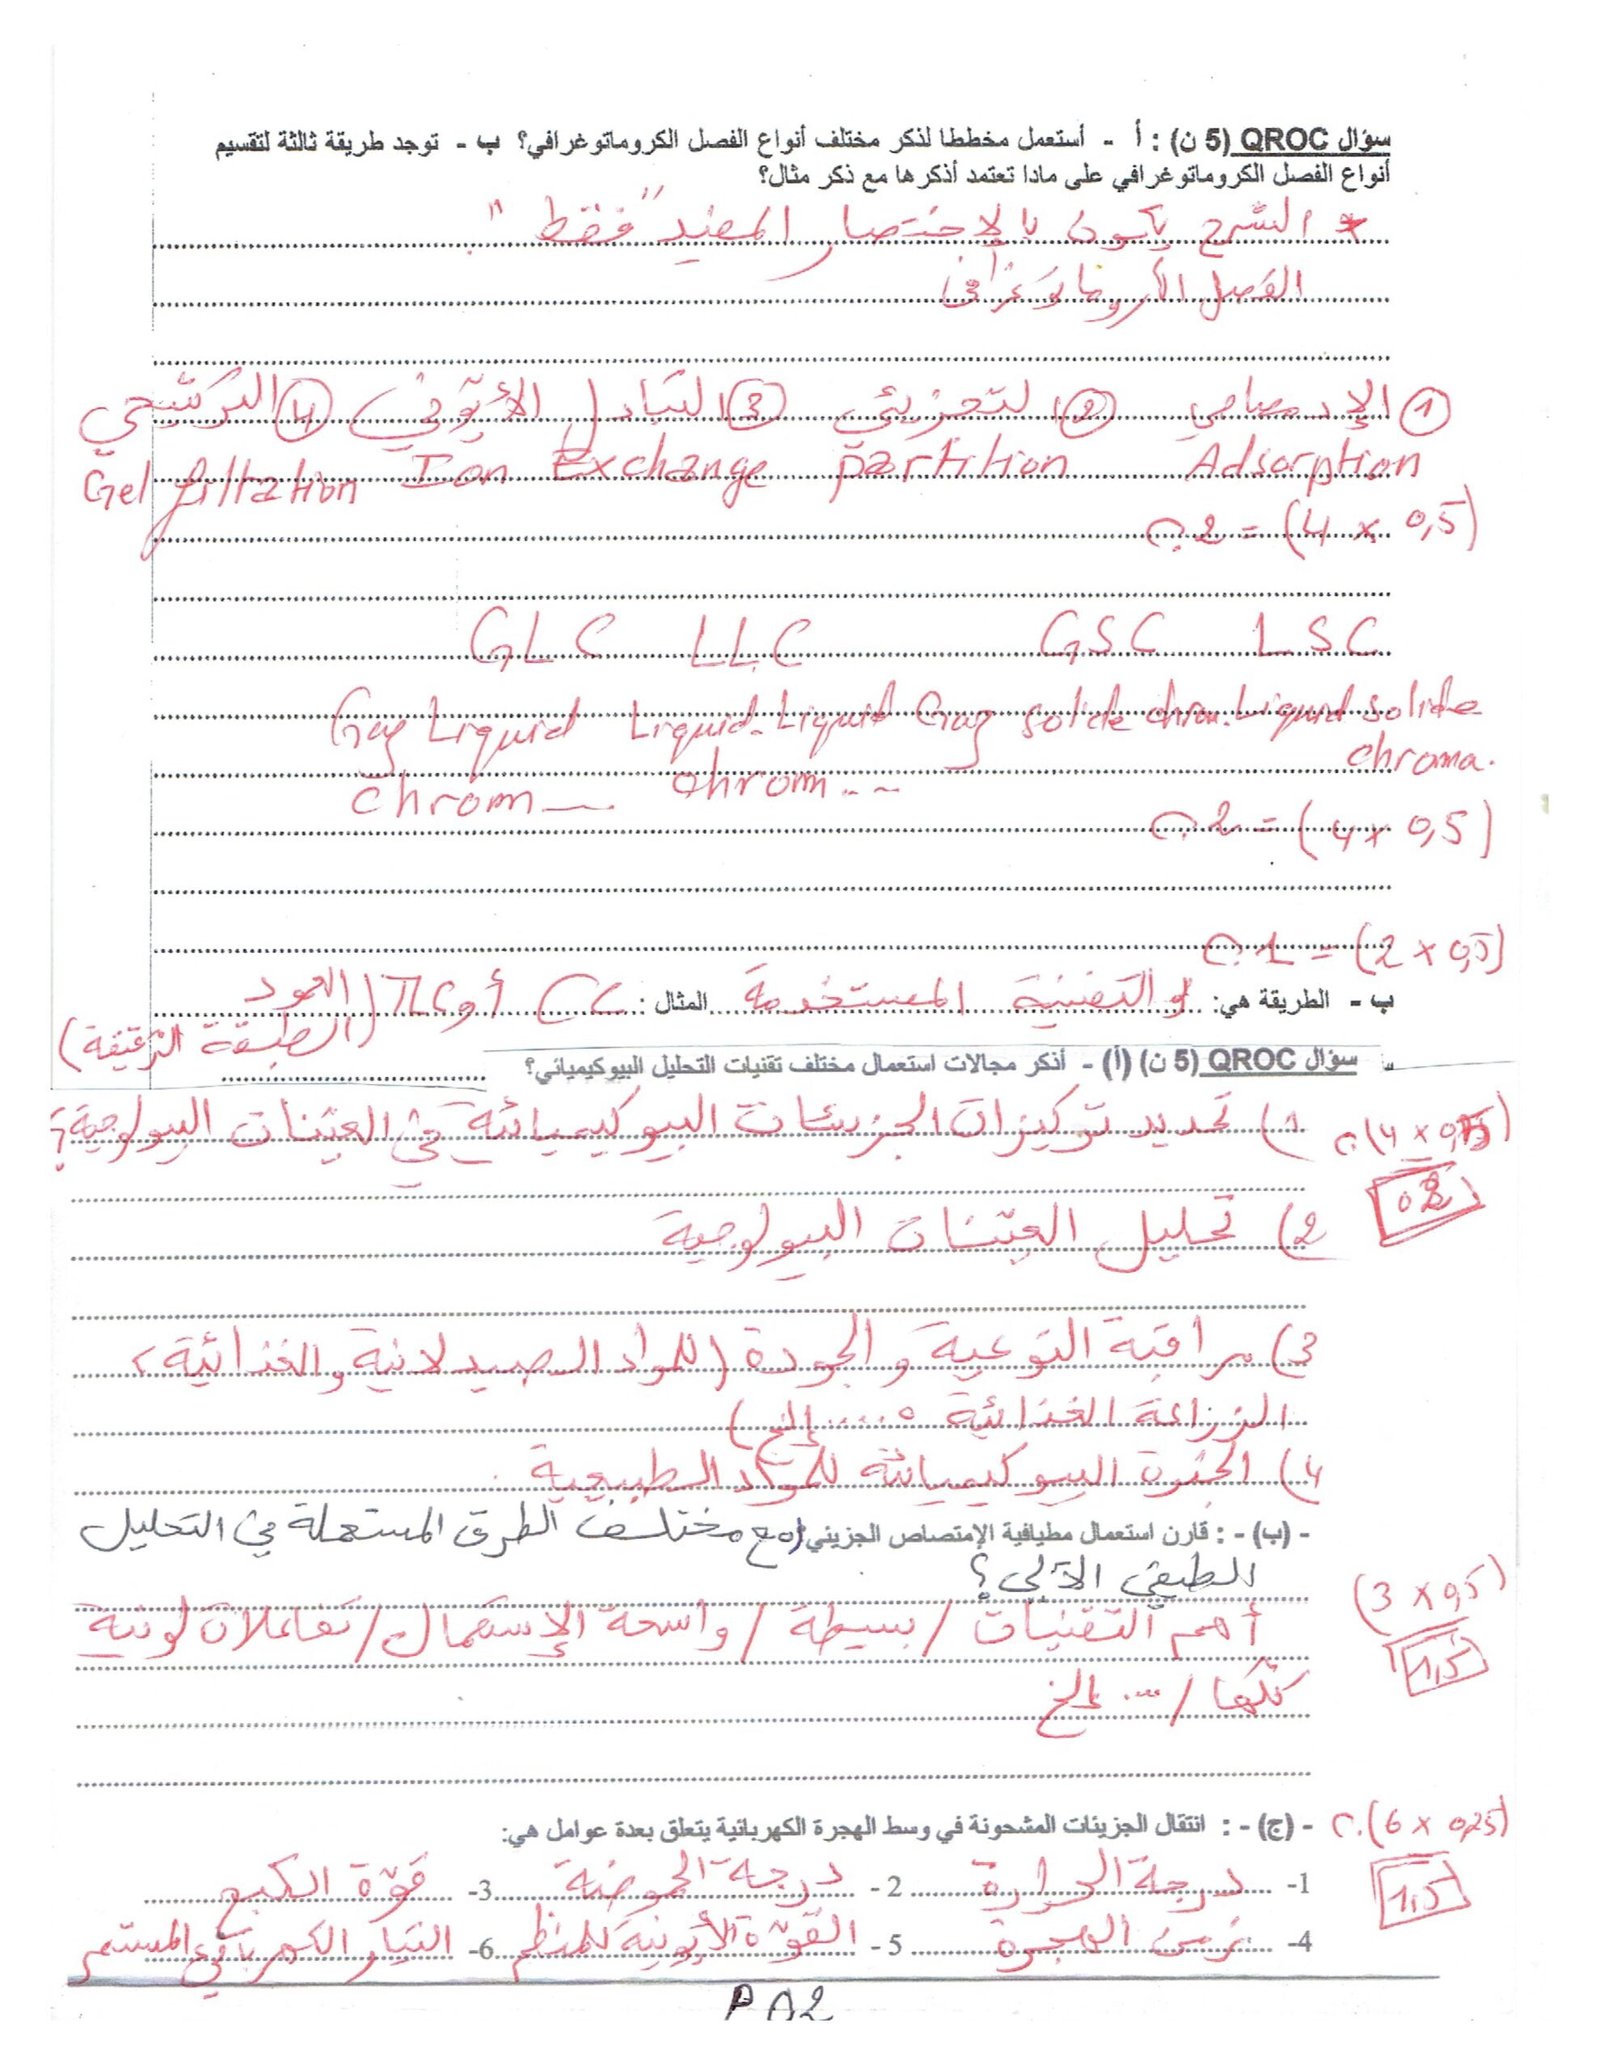 سؤال QROC (5 ن) : أ - أستعمل مخططا لذكر مختلف أنواع الفصل الكروماتوغرافي؟ ب - توجد طريقة ثالثة لتقسيم
أنواع الفصل الكروماتوغرافي على ماذا تعتمد أذكرها مع ذكر مثال؟
* الشرح يكون بالإختصار المفيد "فقط".
الفصل الكروماتوغرافي
① الإدمصاصي ② التجزيئي ③ التبادل الأيوني ④ الترشيحي
Gel filtation Ion Exchange partition Adsorption
ن 2 = (4 x 0,5)
GLC LLC GSC LSC
Gaz Liquid Liquid-Liquid Gaz solide chrom. Liquid solide
chrom chrom... chroma.
ن 2 = (4 x 0,5)
ن 1 = (2 x 0,5)
ب - الطريقة هي: التقنية المستخدمة المثال : CC أو TLC (العمود
(الطبقة الرقيقة)
سؤال QROC (5 ن) (أ) - أذكر مجالات استعمال مختلف تقنيات التحليل البيوكيميائي؟
1) تحديد تركيزات الجزيئات البيوكيميائية في العينات البيولوجية؟ ن (4 x 0,5)
02
2) تحليل العينات البيولوجية
3) مراقبة النوعية والجودة (للمواد الصيدلانية والغذائية،
الزراعة الغذائية ..... إلخ)
4) الخبرة البيوكيميائية للمواد الطبيعية.
- (ب) - : قارن استعمال مطيافية الإمتصاص الجزيئي مع مختلف الطرق المستعملة في التحليل
الطيفي الآلي؟
(3 x 0,5)
أهم التقنيات / بسيطة / واسعة الإستعمال / تفاعلات لونية
1,5
/ ... إلخ
- (ج) - : انتقال الجزيئات المشحونة في وسط الهجرة الكهربائية يتعلق بعدة عوامل هي: ن (6 x 0,25)
1- درجة الحرارة 2- درجة الحموضة 3- قوة الكبح
1,5
4- زمن الهجرة 5- القوة الأيونية للمنظم 6- التيار الكهربائي المستمر
P 02